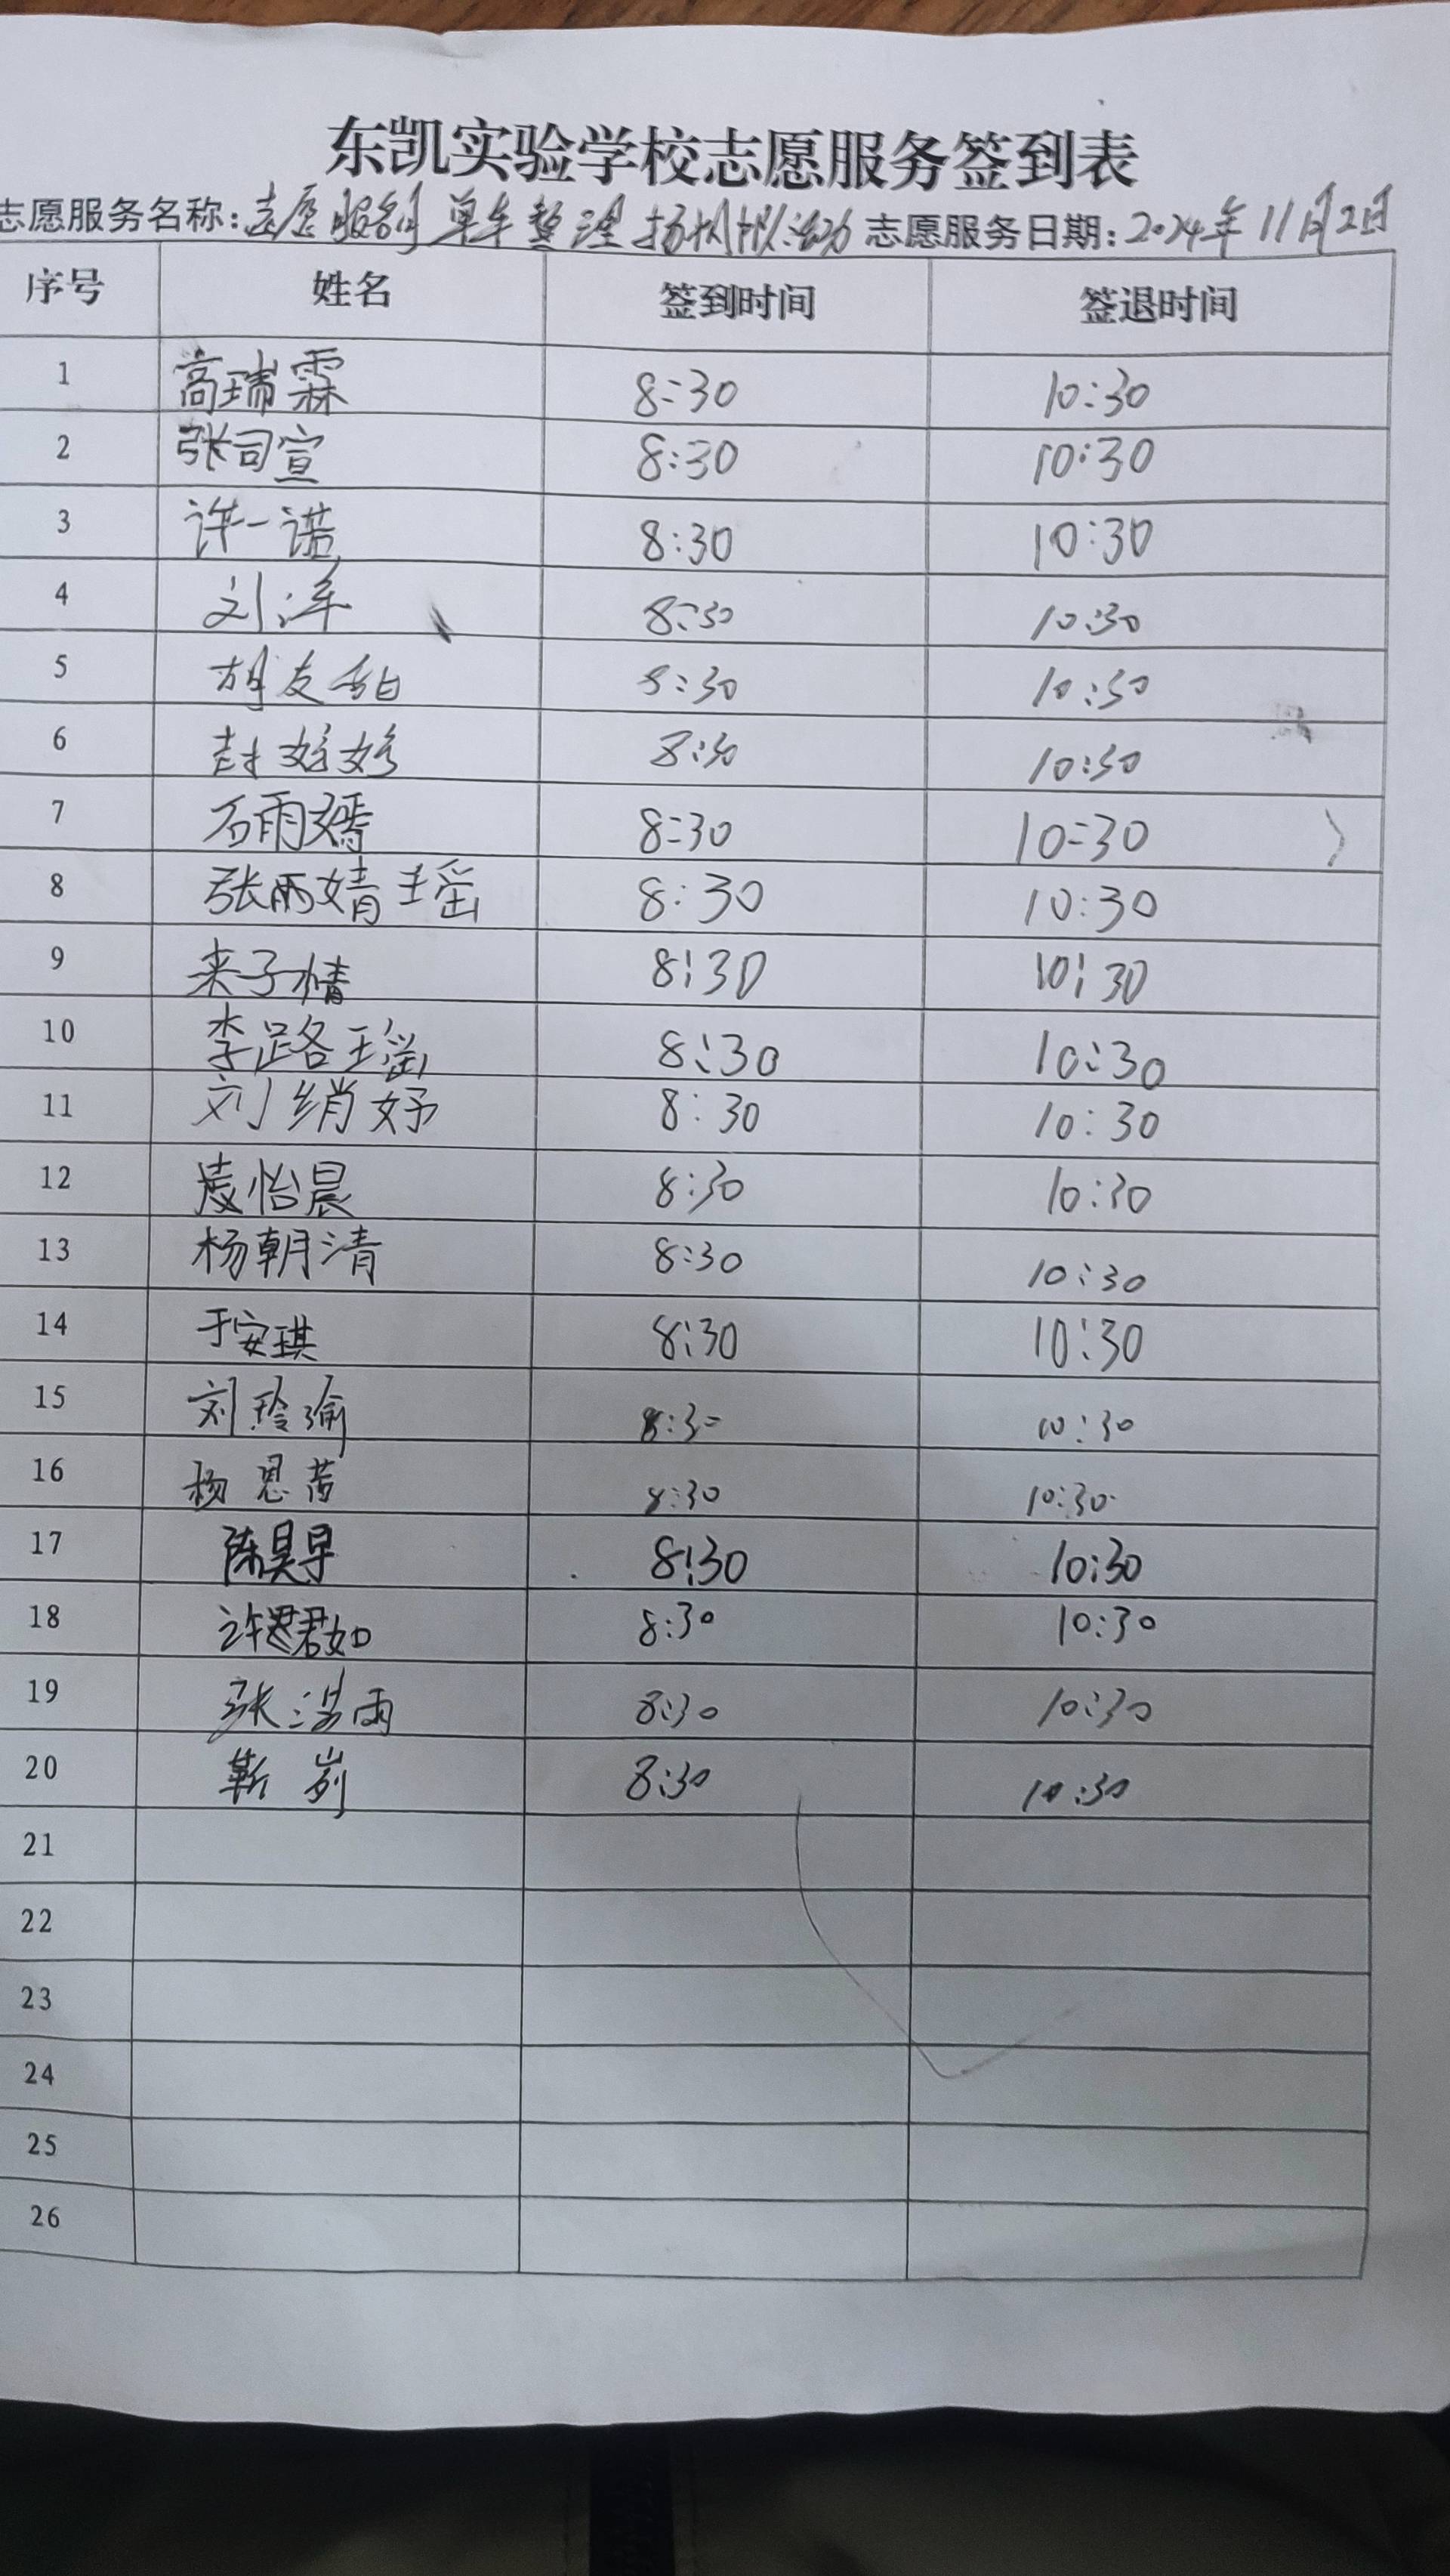 东凯实验学校志愿服务签到表
志愿服务名称:志愿服务 单车整理 活动 志愿服务日期:2024年11月2日
序号 姓名 签到时间 签退时间
1 高瑞霖 8:30 10:30
2 张司宣 8:30 10:30
3 许一诺 8:30 10:30
4 刘洋 8:30 10:30
5 胡友甜 8:30 10:30
6 封婷婷 8:30 10:30
7 石雨嫣 8:30 10:30
8 张雨婧瑶 8:30 10:30
9 来子精 8:30 10:30
10 李路瑶 8:30 10:30
11 刘绡妤 8:30 10:30
12 凌怡晨 8:30 10:30
13 杨朝清 8:30 10:30
14 于安琪 8:30 10:30
15 刘玲瑜 8:30 10:30
16 杨恩茜 8:30 10:30
17 陈昊早 8:30 10:30
18 许君如 8:30 10:30
19 张 雨 8:30 10:30
20 靳 8:30 10:30
21
22
23
24
25
26